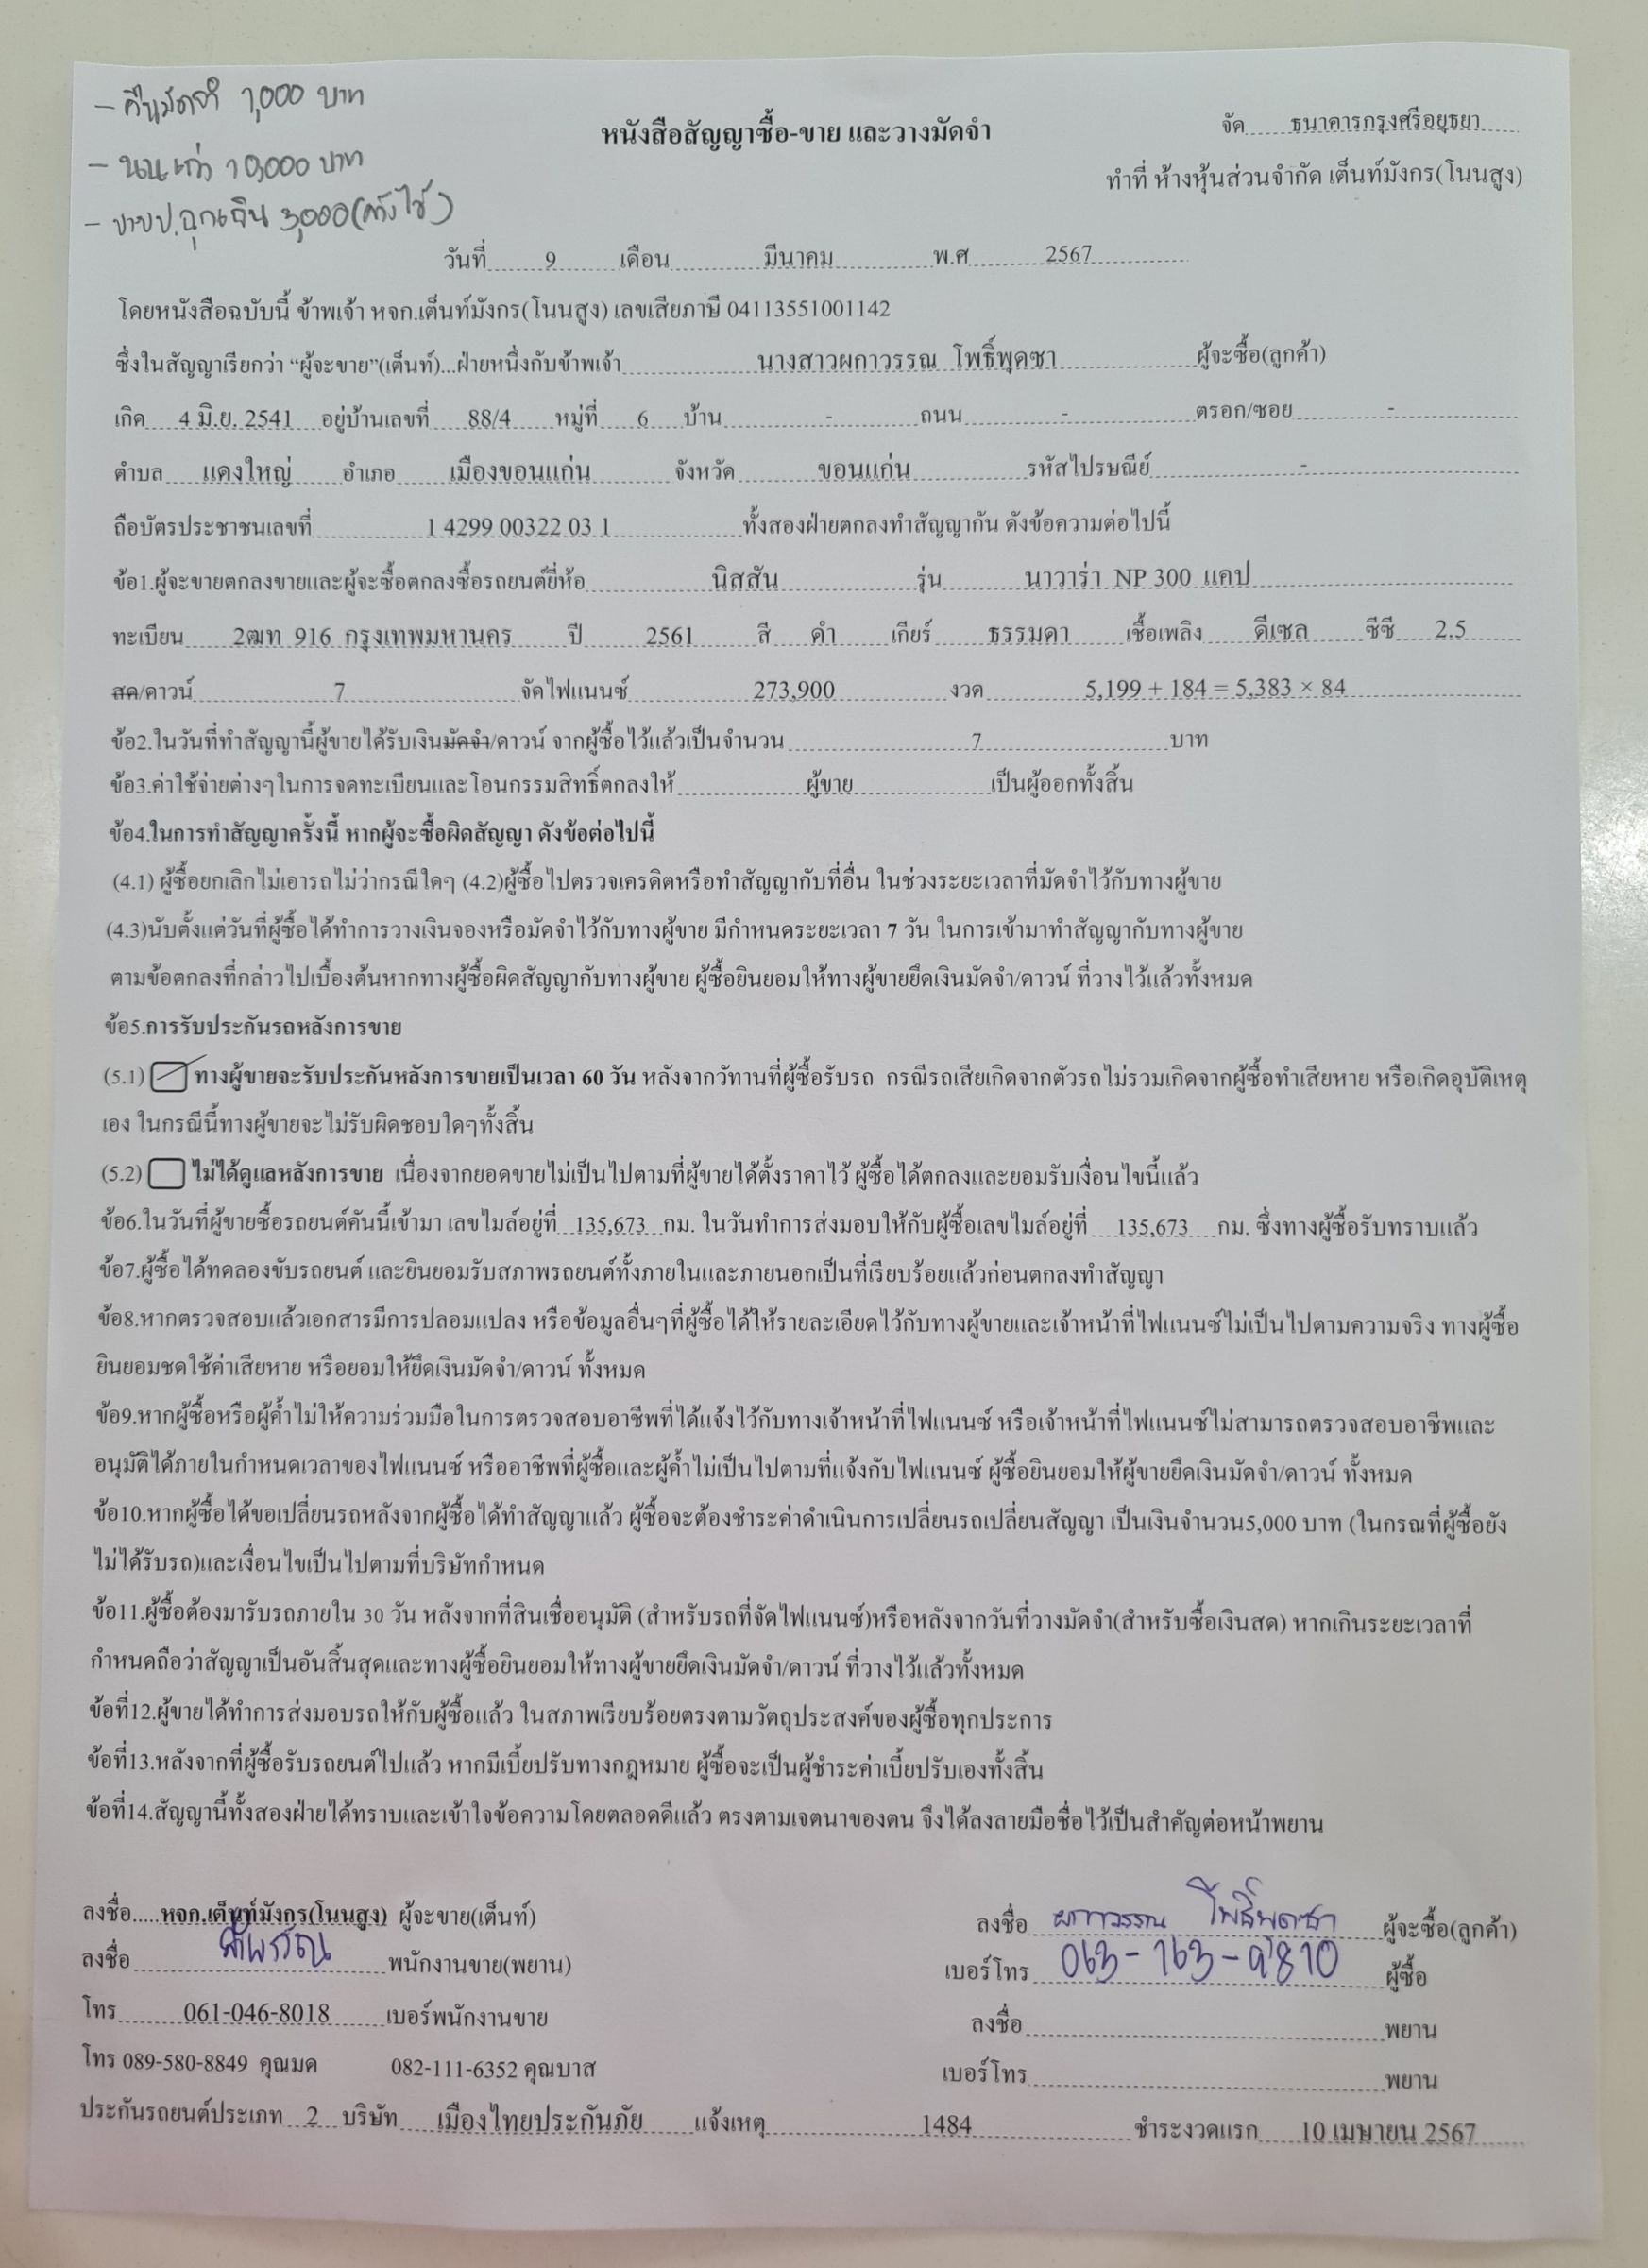 - คืนมัดจำ 1,000 บาท
- แนะนำ 10,000 บาท
- ฉุกเฉิน 3,000
หนังสือสัญญาซื้อ-ขาย และวางมัดจำ
จัด ธนาคารกรุงศรีอยุธยา
ทำที่ ห้างหุ้นส่วนจำกัด เต็นท์มังกร(โนนสูง)
วันที่ 9 เดือน มีนาคม พ.ศ 2567
โดยหนังสือฉบับนี้ ข้าพเจ้า หจก.เต็นท์มังกร(โนนสูง) เลขเสียภาษี 04113551001142
ซึ่งในสัญญาเรียกว่า “ผู้จะขาย”(เต็นท์)...ฝ่ายหนึ่งกับข้าพเจ้า นางสาวผกาวรรณ โพธิ์พุดซา ผู้จะซื้อ(ลูกค้า)
เกิด 4 มิ.ย. 2541 อยู่บ้านเลขที่ 88/4 หมู่ที่ 6 บ้าน - ถนน - ตรอก/ซอย -
ตำบล แดงใหญ่ อำเภอ เมืองขอนแก่น จังหวัด ขอนแก่น รหัสไปรษณีย์ -
ถือบัตรประชาชนเลขที่ 1 4299 00322 03 1 ทั้งสองฝ่ายตกลงทำสัญญากัน ดังข้อความต่อไปนี้
ข้อ1.ผู้จะขายตกลงขายและผู้จะซื้อตกลงซื้อรถยนต์ยี่ห้อ นิสสัน รุ่น นาวาร่า NP 300 แคป
ทะเบียน 2ฒท 916 กรุงเทพมหานคร ปี 2561 สี ดำ เกียร์ ธรรมดา เชื้อเพลิง ดีเซล ซีซี 2.5
สด/ดาวน์ 7 จัดไฟแนนซ์ 273,900 งวด 5,199 + 184 = 5,383 × 84
ข้อ2.ในวันที่ทำสัญญานี้ผู้ขายได้รับเงินมัดจำ/ดาวน์ จากผู้ซื้อไว้แล้วเป็นจำนวน 7 บาท
ข้อ3.ค่าใช้จ่ายต่างๆในการจดทะเบียนและโอนกรรมสิทธิ์ตกลงให้ ผู้ขาย เป็นผู้ออกทั้งสิ้น
ข้อ4.ในการทำสัญญาครั้งนี้ หากผู้จะซื้อผิดสัญญา ดังข้อต่อไปนี้
(4.1) ผู้ซื้อยกเลิกไม่เอารถไม่ว่ากรณีใดๆ (4.2)ผู้ซื้อไปตรวจเครดิตหรือทำสัญญากับที่อื่น ในช่วงระยะเวลาที่มัดจำไว้กับทางผู้ขาย
(4.3)นับตั้งแต่วันที่ผู้ซื้อได้ทำการวางเงินจองหรือมัดจำไว้กับทางผู้ขาย มีกำหนดระยะเวลา 7 วัน ในการเข้ามาทำสัญญากับทางผู้ขาย
ตามข้อตกลงที่กล่าวไปเบื้องต้นหากทางผู้ซื้อผิดสัญญากับทางผู้ขาย ผู้ซื้อยินยอมให้ทางผู้ขายยึดเงินมัดจำ/ดาวน์ ที่วางไว้แล้วทั้งหมด
ข้อ5.การรับประกันรถหลังการขาย
(5.1) ทางผู้ขายจะรับประกันหลังการขายเป็นเวลา 60 วัน หลังจากวัทานที่ผู้ซื้อรับรถ กรณีรถเสียเกิดจากตัวรถไม่รวมเกิดจากผู้ซื้อทำเสียหาย หรือเกิดอุบัติเหตุ
เอง ในกรณีนี้ทางผู้ขายจะไม่รับผิดชอบใดๆทั้งสิ้น
(5.2) ไม่ได้ดูแลหลังการขาย เนื่องจากยอดขายไม่เป็นไปตามที่ผู้ขายได้ตั้งราคาไว้ ผู้ซื้อได้ตกลงและยอมรับเงื่อนไขนี้แล้ว
ข้อ6.ในวันที่ผู้ขายซื้อรถยนต์คันนี้เข้ามา เลขไมล์อยู่ที่ 135,673 กม. ในวันทำการส่งมอบให้กับผู้ซื้อเลขไมล์อยู่ที่ 135,673 กม. ซึ่งทางผู้ซื้อรับทราบแล้ว
ข้อ7.ผู้ซื้อได้ทดลองขับรถยนต์ และยินยอมรับสภาพรถยนต์ทั้งภายในและภายนอกเป็นที่เรียบร้อยแล้วก่อนตกลงทำสัญญา
ข้อ8.หากตรวจสอบแล้วเอกสารมีการปลอมแปลง หรือข้อมูลอื่นๆที่ผู้ซื้อได้ให้รายละเอียดไว้กับทางผู้ขายและเจ้าหน้าที่ไฟแนนซ์ไม่เป็นไปตามความจริง ทางผู้ซื้อ
ยินยอมชดใช้ค่าเสียหาย หรือยอมให้ยึดเงินมัดจำ/ดาวน์ ทั้งหมด
ข้อ9.หากผู้ซื้อหรือผู้ค้ำไม่ให้ความร่วมมือในการตรวจสอบอาชีพที่ได้แจ้งไว้กับทางเจ้าหน้าที่ไฟแนนซ์ หรือเจ้าหน้าที่ไฟแนนซ์ไม่สามารถตรวจสอบอาชีพและ
อนุมัติได้ภายในกำหนดเวลาของไฟแนนซ์ หรืออาชีพที่ผู้ซื้อและผู้ค้ำไม่เป็นไปตามที่แจ้งกับไฟแนนซ์ ผู้ซื้อยินยอมให้ผู้ขายยึดเงินมัดจำ/ดาวน์ ทั้งหมด
ข้อ10.หากผู้ซื้อได้ขอเปลี่ยนรถหลังจากผู้ซื้อได้ทำสัญญาแล้ว ผู้ซื้อจะต้องชำระค่าดำเนินการเปลี่ยนรถเปลี่ยนสัญญา เป็นเงินจำนวน5,000 บาท (ในกรณที่ผู้ซื้อยัง
ไม่ได้รับรถ)และเงื่อนไขเป็นไปตามที่บริษัทกำหนด
ข้อ11.ผู้ซื้อต้องมารับรถภายใน 30 วัน หลังจากที่สินเชื่ออนุมัติ (สำหรับรถที่จัดไฟแนนซ์)หรือหลังจากวันที่วางมัดจำ(สำหรับซื้อเงินสด) หากเกินระยะเวลาที่
กำหนดถือว่าสัญญาเป็นอันสิ้นสุดและทางผู้ซื้อยินยอมให้ทางผู้ขายยึดเงินมัดจำ/ดาวน์ ที่วางไว้แล้วทั้งหมด
ข้อที่12.ผู้ขายได้ทำการส่งมอบรถให้กับผู้ซื้อแล้ว ในสภาพเรียบร้อยตรงตามวัตถุประสงค์ของผู้ซื้อทุกประการ
ข้อที่13.หลังจากที่ผู้ซื้อรับรถยนต์ไปแล้ว หากมีเบี้ยปรับทางกฎหมาย ผู้ซื้อจะเป็นผู้ชำระค่าเบี้ยปรับเองทั้งสิ้น
ข้อที่14.สัญญานี้ทั้งสองฝ่ายได้ทราบและเข้าใจข้อความโดยตลอดดีแล้ว ตรงตามเจตนาของตน จึงได้ลงลายมือชื่อไว้เป็นสำคัญต่อหน้าพยาน
ลงชื่อ.....หจก.เต็นท์มังกร(โนนสูง) ผู้จะขาย(เต็นท์)
ลงชื่อ พนักงานขาย(พยาน)
โทร 061-046-8018 เบอร์พนักงานขาย
โทร 089-580-8849 คุณมด 082-111-6352 คุณบาส
ลงชื่อ ผกาวรรณ โพธิ์พุดซา ผู้จะซื้อ(ลูกค้า)
เบอร์โทร 063-163-9810 ผู้ซื้อ
ลงชื่อ พยาน
เบอร์โทร พยาน
ประกันรถยนต์ประเภท 2 บริษัท เมืองไทยประกันภัย แจ้งเหตุ 1484 ชำระงวดแรก 10 เมษายน 2567